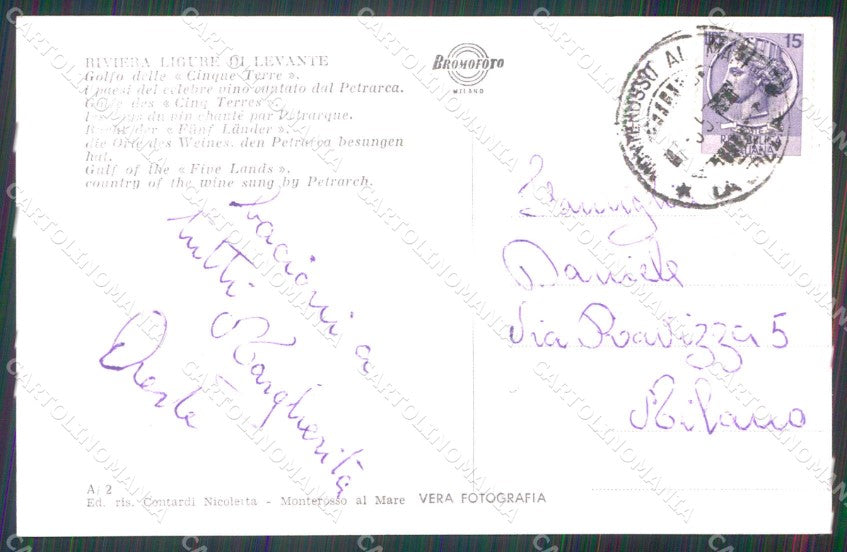 RIVIERA LIGURE DI LEVANTE
Golfo delle « Cinque Terre ».
I paesi del celebre vino cantato dal Petrarca.
Golfe des « Cinq Terres ».
Les pays du vin chanté par Petrarque.
Bucht der « Fünf Länder ».
die Orte des Weines, den Petrarca besungen
hat.
Gulf of the « Five Lands ».
country of the wine sung by Petrarch.
BROMOFOTO
MILANO
15
MONTEROSSO AL MARE
LA SPEZIA
REPUBBLICA
ITALIANA
Bacioni a
tutti
Margherita
Oreste
Famiglia
Daniele
Via Ravizza 5
Milano
A/2
Ed. ris. Contardi Nicoletta - Monterosso al Mare
VERA FOTOGRAFIA
CARTOLINOMANIA